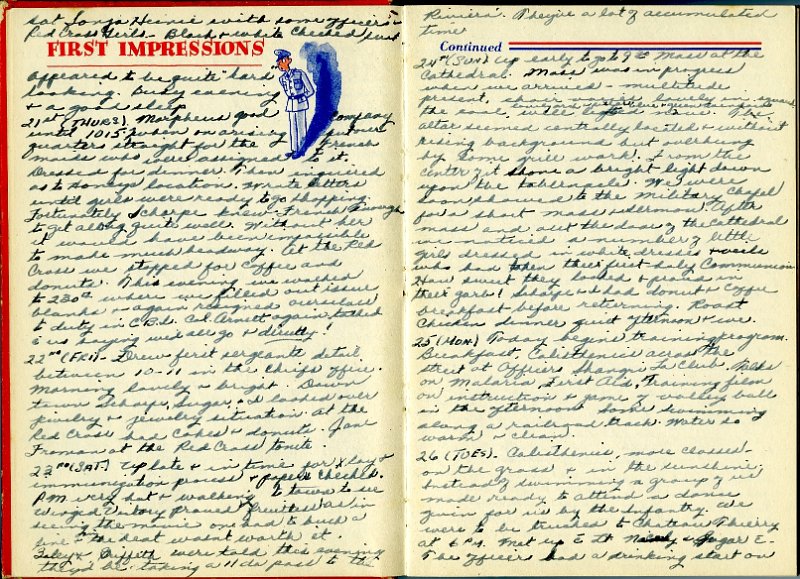 Sat Sonja Heinie with some officers &
Red Cross Girls. Black & white checked suit
FIRST IMPRESSIONS
appeared to be quite "hard
looking. Busy evening
& a good sleep
21st (THURS). Morpheus good company
until 1015 when on arising put our
quarters straight for the French
maids who were assigned to it.
Dressed for dinner. Then inquired
as to Honeys location. Wrote letters
until girls were ready to go shopping.
Fortunately Scharpe knew French enough
to get along quite well. Without her
it would have been impossible
to make much headway. At the Red
Cross we stopped for coffee and
donuts. This evening we walked
to 230th where we filled out issue
blanks & again resigned ourselves
to duty in C.B.I. Col. Arnett again talked
to us saying we'd all go & directly!
22nd (FRI) - Drew first sergeants detail
between 10-11 in the chiefs office.
Morning lovely & bright. Down
town Scharpe, Sugar & I looked over
jewelry & jewelry situation. At the
Red Cross had Cokes & donuts. Jane
Froman at the Red Cross tonite.
23rd (SAT). Up late & in time for X lay &
immunization process & papers checked.
P.M. very hot & walking to town to see
Winged Victory proved fruitless as in
seeing the movie one had to buck a
line & the heat wasn't worth it.
& were told this evening
they'd be taking a 11 da pass to the
Riviera. They've a lot of accumulated
time
Continued
24th (SUN) Up early to go to 9:00 Mass at the
Cathedral. Mass was in progress
when we arrived - multitude
present, choir
the soul, well lighted nave. The
altar seemed centrally located & without
rising background but overhung
by some grill work. From the
center of it shone a bright light down
upon the tabernacle. We were
soon showed to the Military Chapel
for a short mass & sermon. After
mass and out the door of the Cathedral
we noticed a number of little
girls dressed in white dresses & veils
who had taken their first Holy Communion
How sweet they looked & pious in
their garb! Scharpe & I had donuts & coffee
breakfast before returning. Roast
Chicken dinner quiet afternoon & eve.
25 (MON) Today begins training program.
Breakfast, Calisthenics across the
street at Officers Shangri La Club, talks
on Malaria, First Aid, Training film
on instruction & game of volley ball
in the afternoon some swimming
along a railroad track. Water so
warm & clean.
26 (TUES). Calisthenics, more classes -
on the grass & in the sunshine,
Instead of swimming a group of us
made ready to attend a dance
given for us by the Infantry. We
were to be trucked to Chateau Thierry
at 6 P.M. Met up & Sugar E-
The officers had a drinking start on